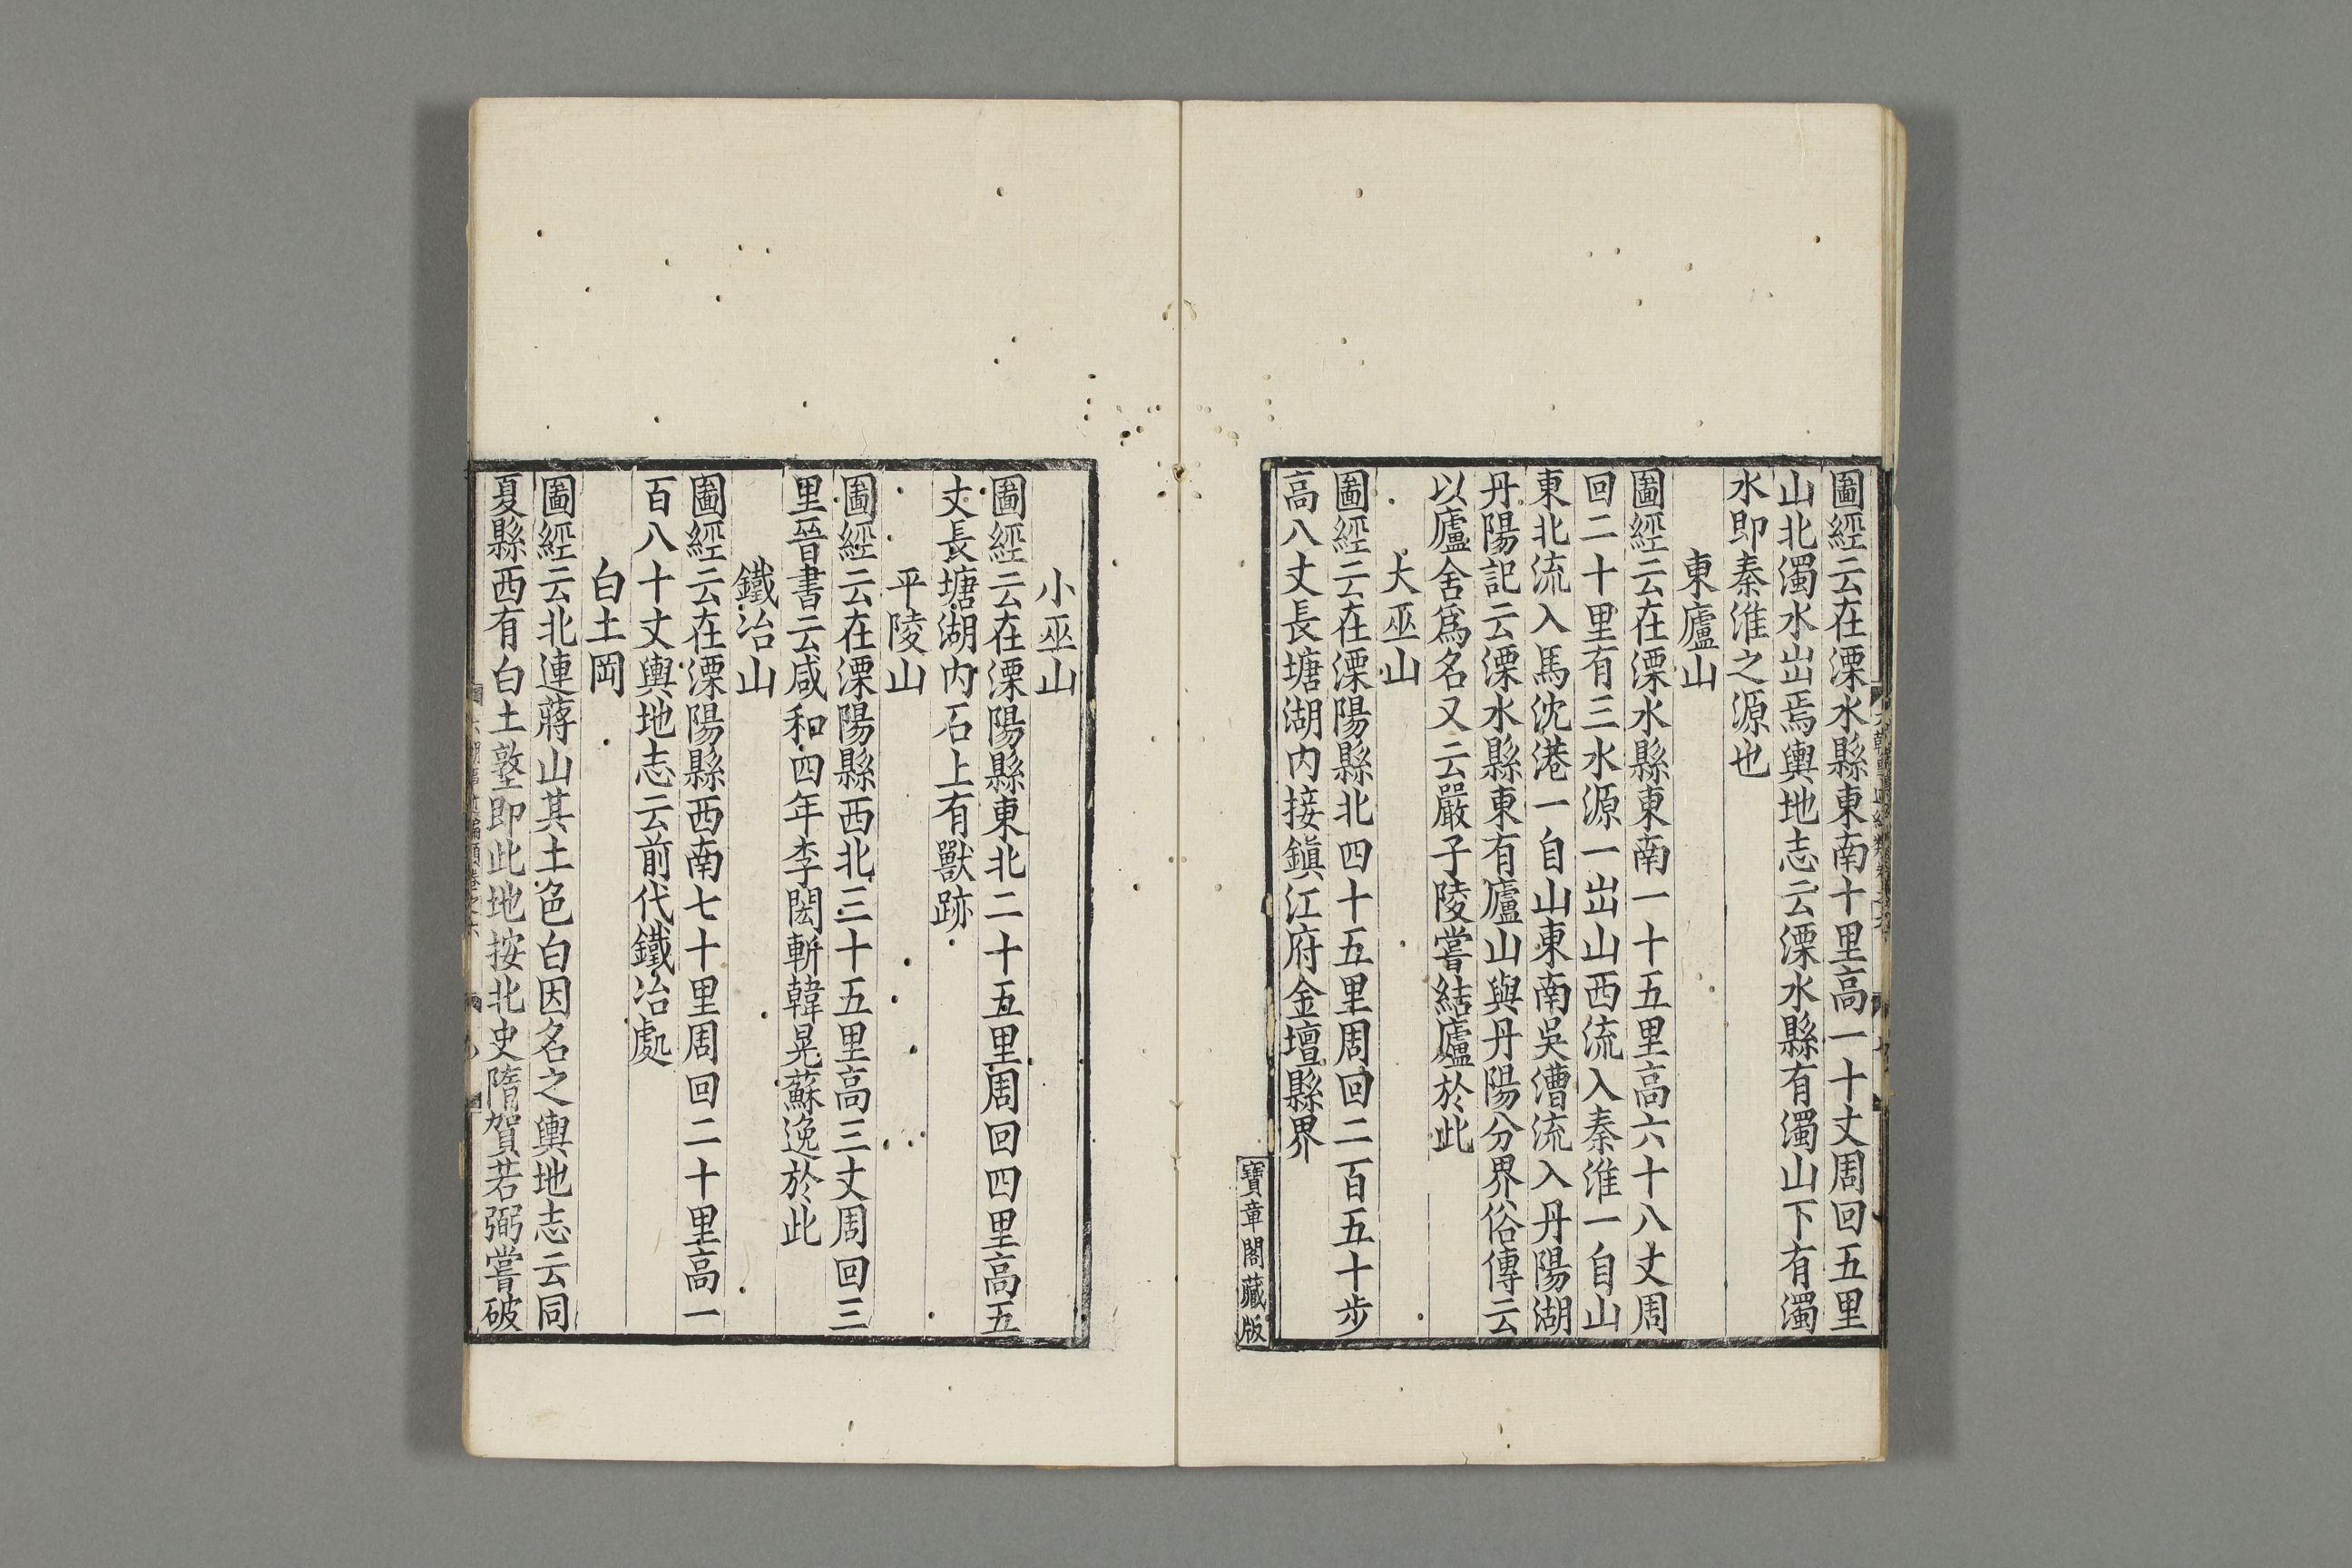 圖經云在溧水縣東南十里高一十丈周回五里
山北濁水出焉輿地志云溧水縣有濁山下有濁
水即秦淮之源也
東廬山
圖經云在溧水縣東南一十五里高六十八丈周
回二十里有三水源一出山西流入秦淮一自山
東北流入馬沈港一自山東南吳漕流入丹陽湖
丹陽記云溧水縣東有廬山與丹陽分界俗傳云
以廬舍爲名又云嚴子陵嘗結廬於此
大巫山
圖經云在溧陽縣北四十五里周回二百五十步
高八丈長塘湖内接鎭江府金壇縣界
寶章閣藏版
小巫山
圖經云在溧陽縣東北二十五里周回四里高五
丈長塘湖内石上有獸跡
平陵山
圖經云在溧陽縣西北三十五里高三丈周回三
里晉書云咸和四年李閎斬韓晃蘇逸於此
鐵冶山
圖經云在溧陽縣西南七十里周回二十里高一
百八十丈輿地志云前代鐵冶處
白土岡
圖經云北連蔣山其土色白因名之輿地志云同
夏縣西有白土墪即此地按北史隋賀若弼嘗破